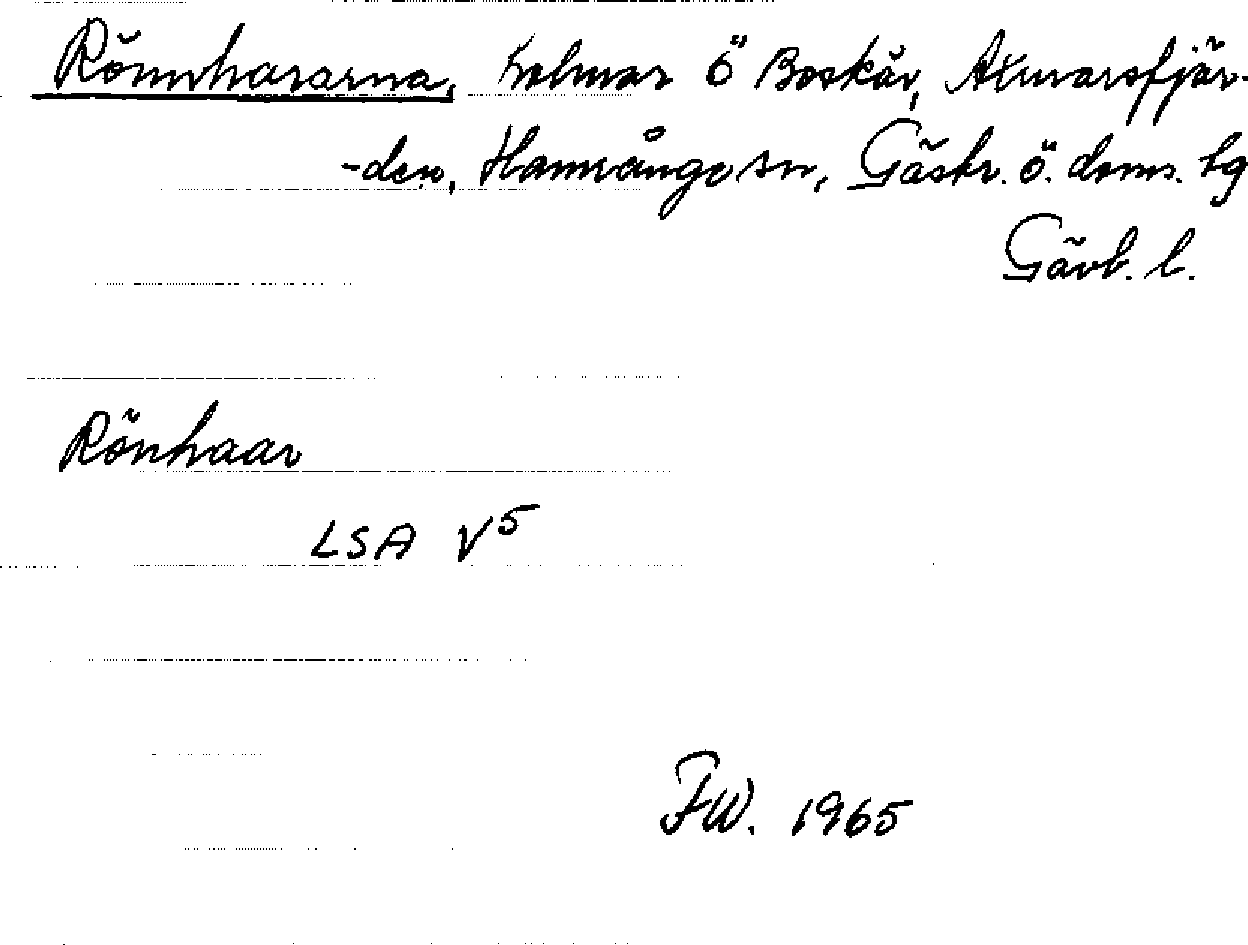 Rönnhararna, holmar Ö Boskär, Axmarsfjär-
-den, Hamrånge sn, Gästr. ö. doms. tg
Gävb. l.
Rönhaar
LSA V5
FW. 1965